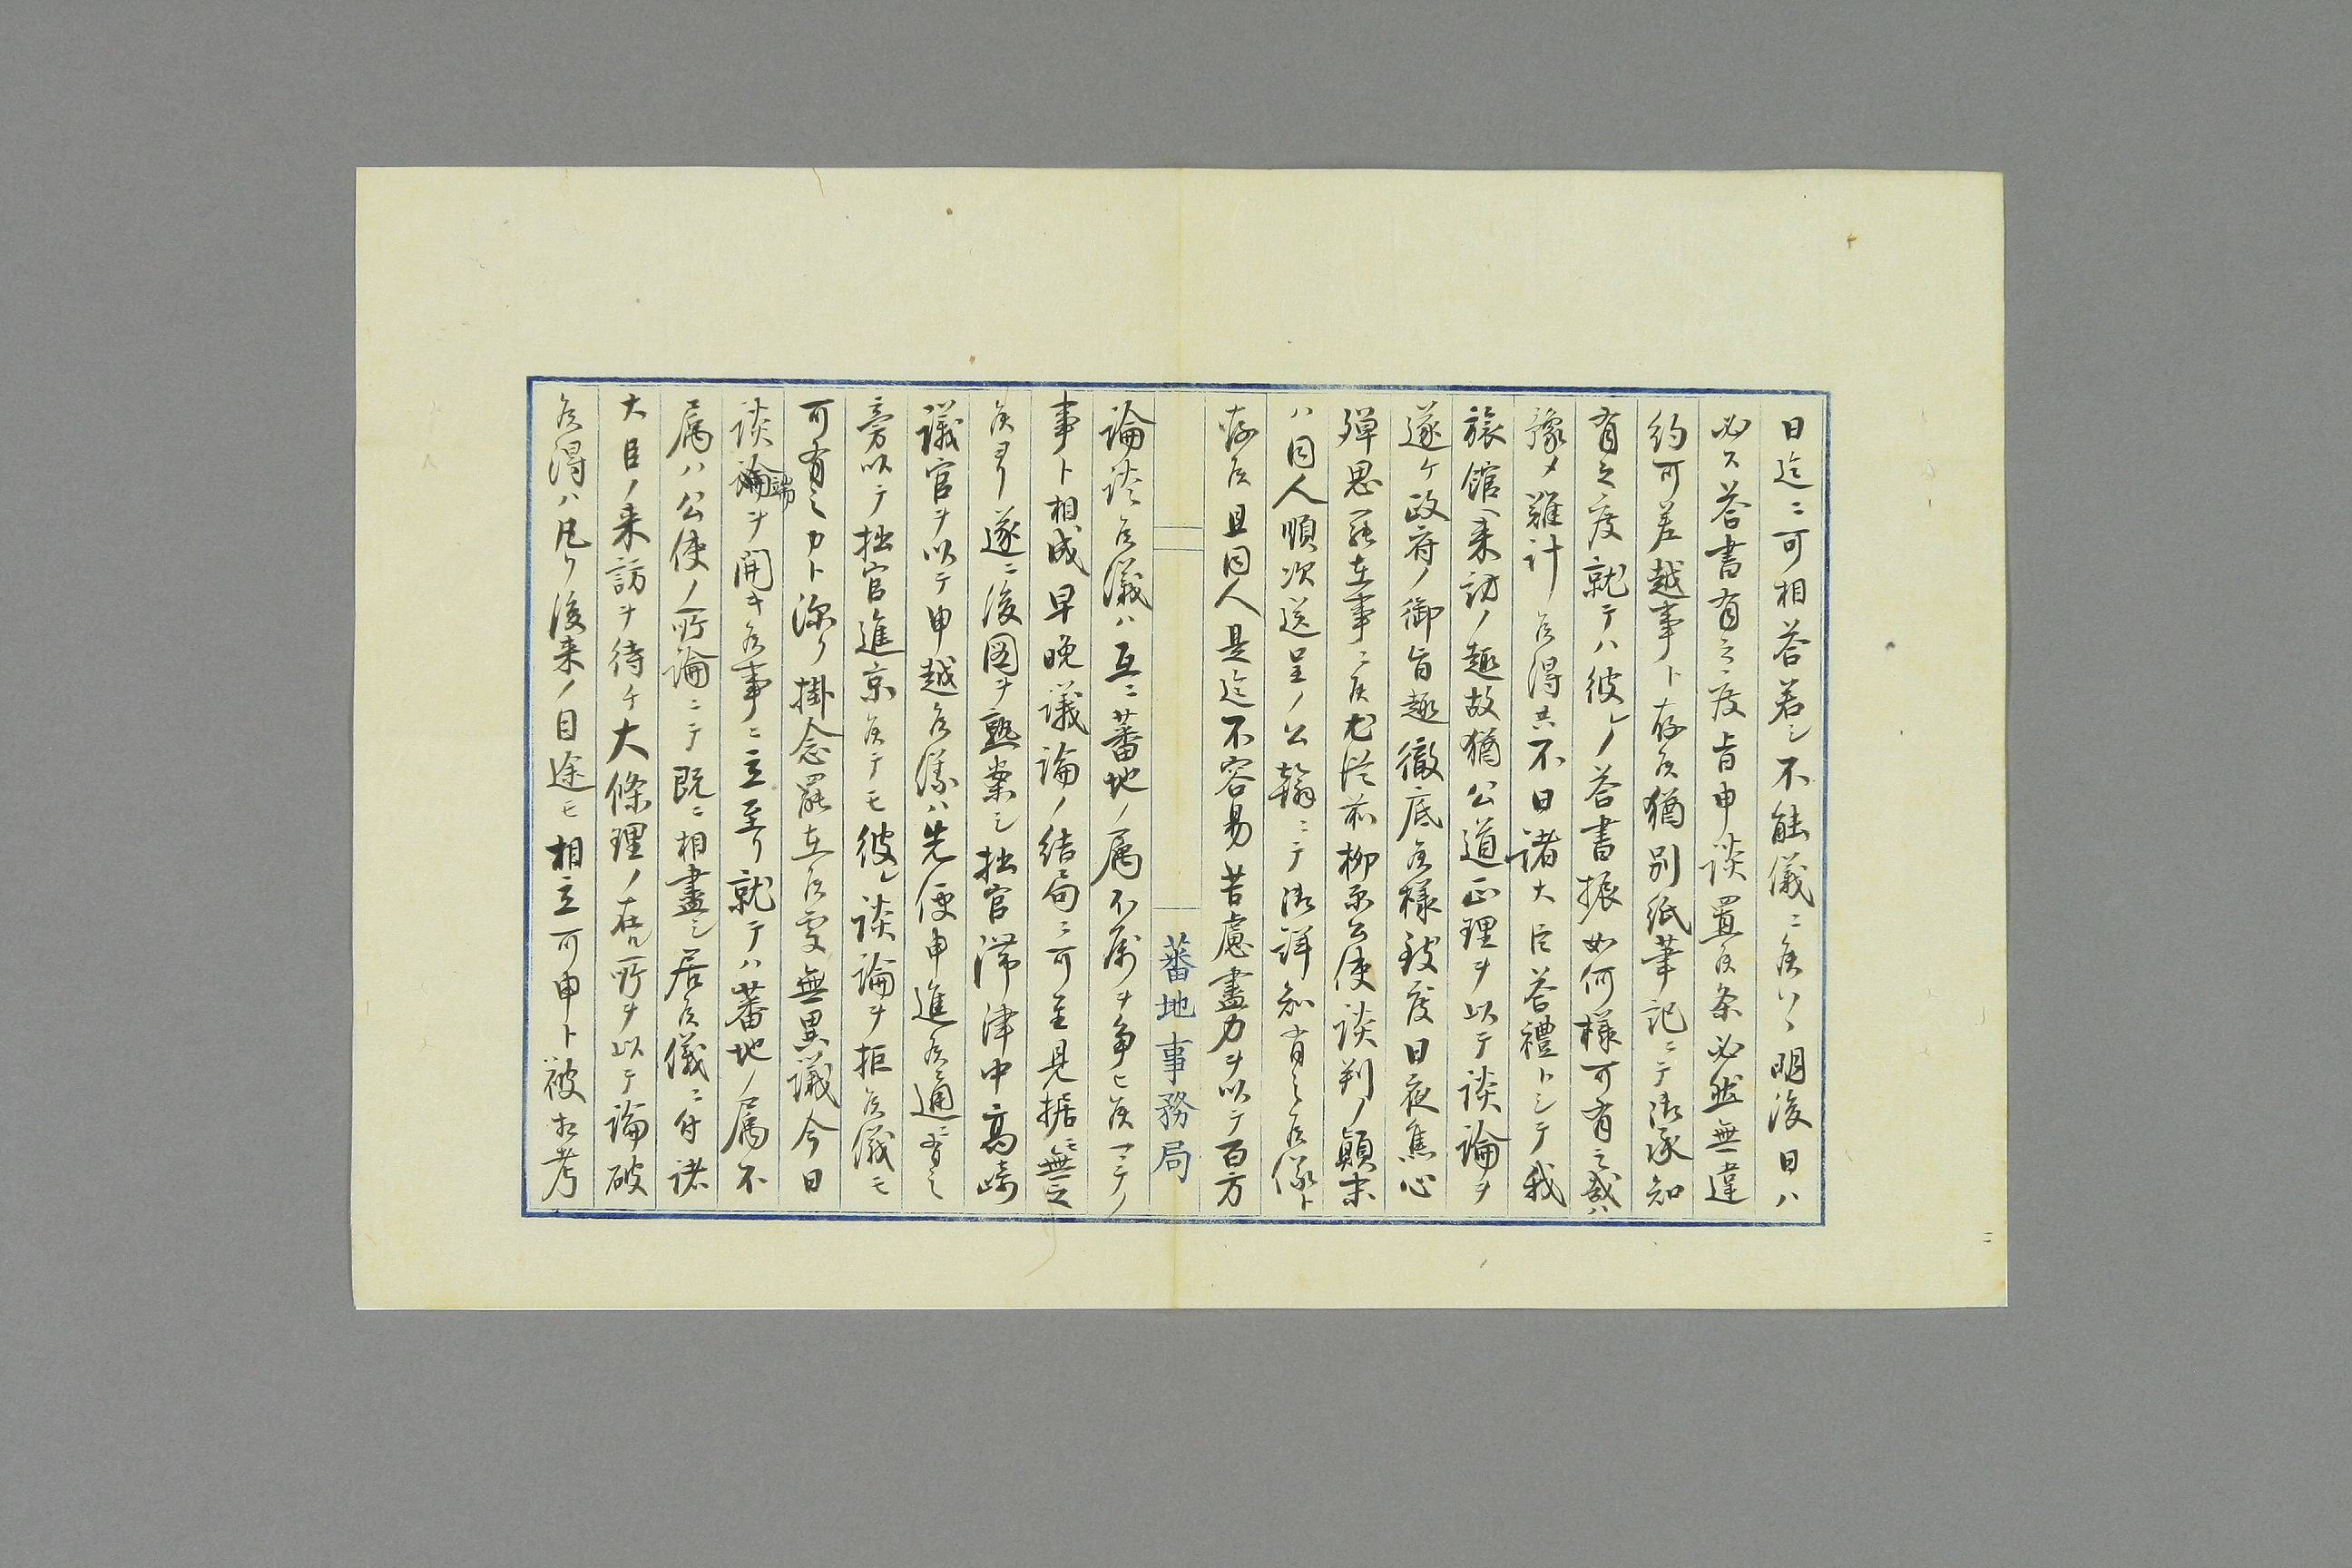 日迄ニ可相答若シ不能儀ニ候ハヽ明後日ハ
必ス答書有之度旨申談置候条必然無違
約可差越事ト存候猶別紙筆記ニテ御承知
有之度就テハ彼レノ答書振如何様可有之哉ハ
豫メ難計候得共不日諸大臣答禮トシテ我
旅館ヘ来訪ノ趣故猶公道正理ヲ以テ談論ヲ
遂ケ政府ノ御旨趣徹底候様致度日夜焦心
殫思罷在事ニ候尤從前柳原公使談判ノ顛末
ハ同人順次送呈ノ公翰ニテ御詳知有之候儀ト
存候且同人是迄不容易苦慮盡力ヲ以テ百方
蕃地事務局
論談候儀ハ互ニ蕃地ノ属不属ヲ争ヒ候マテノ
事ト相成早晩議論ノ結局ニ可至見据モ無之
候ヨリ遂ニ後図ヲ熟案シ拙官滞津中高崎
議官ヲ以テ申越候儀ハ先便申進候通ニ有之
旁以テ拙官進京候テモ彼レ談論ヲ拒候儀モ
可有之カト深ク掛念罷在候処無異議今日
談端ヲ開キ候事ニ立至リ就テハ蕃地ノ属不
属ハ公使ノ所論ニテ既ニ相盡シ居候儀ニ付諸
大臣ノ来訪ヲ待チ大條理ノ在ル所ヲ以テ論破
候得ハ凡ソ後来ノ目途モ相立可申ト被相考